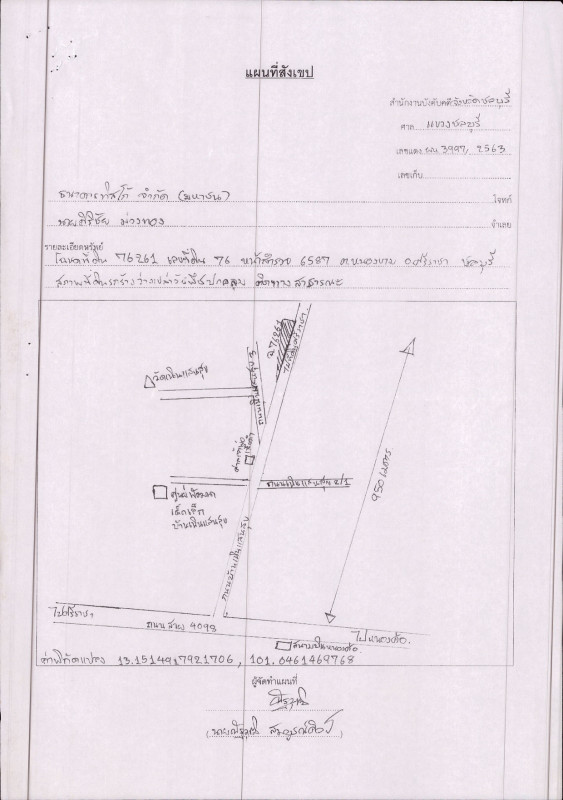 แผนที่สังเขป
สำนักงานบังคับคดีจังหวัดชลบุรี
ศาล แขวงชลบุรี
เลขแดง ผบ. 3997/2563
เลขเก็บ
ธนาคารทิสโก้ จำกัด (มหาชน) โจทก์
นายศิริชัย ม่วงทอง จำเลย
รายละเอียดทรัพย์
โฉนดที่ดิน 76261 เลขที่ดิน 76 หน้าสำรวจ 6587 ต.หนองขาม อ.ศรีราชา ชลบุรี
สภาพที่ดินรกร้างว่างเปล่าวัชพืชปกคลุม ติดทางสาธารณะ
ฉ.76261
วัดเนินแสนสุข
ถนนเนินแสนสุข 2/1
950 เมตร
ศูนย์พัฒนา
เด็กเล็ก
บ้านเนินแสนสุข
ถนนบ้านเนินแสนสุข
ไปศรีราชา
ถนนสาย 4098
ไปหนองค้อ
ค่าพิกัดแปลง 13.1514917921706, 101.0461469768
ผู้จัดทำแผนที่